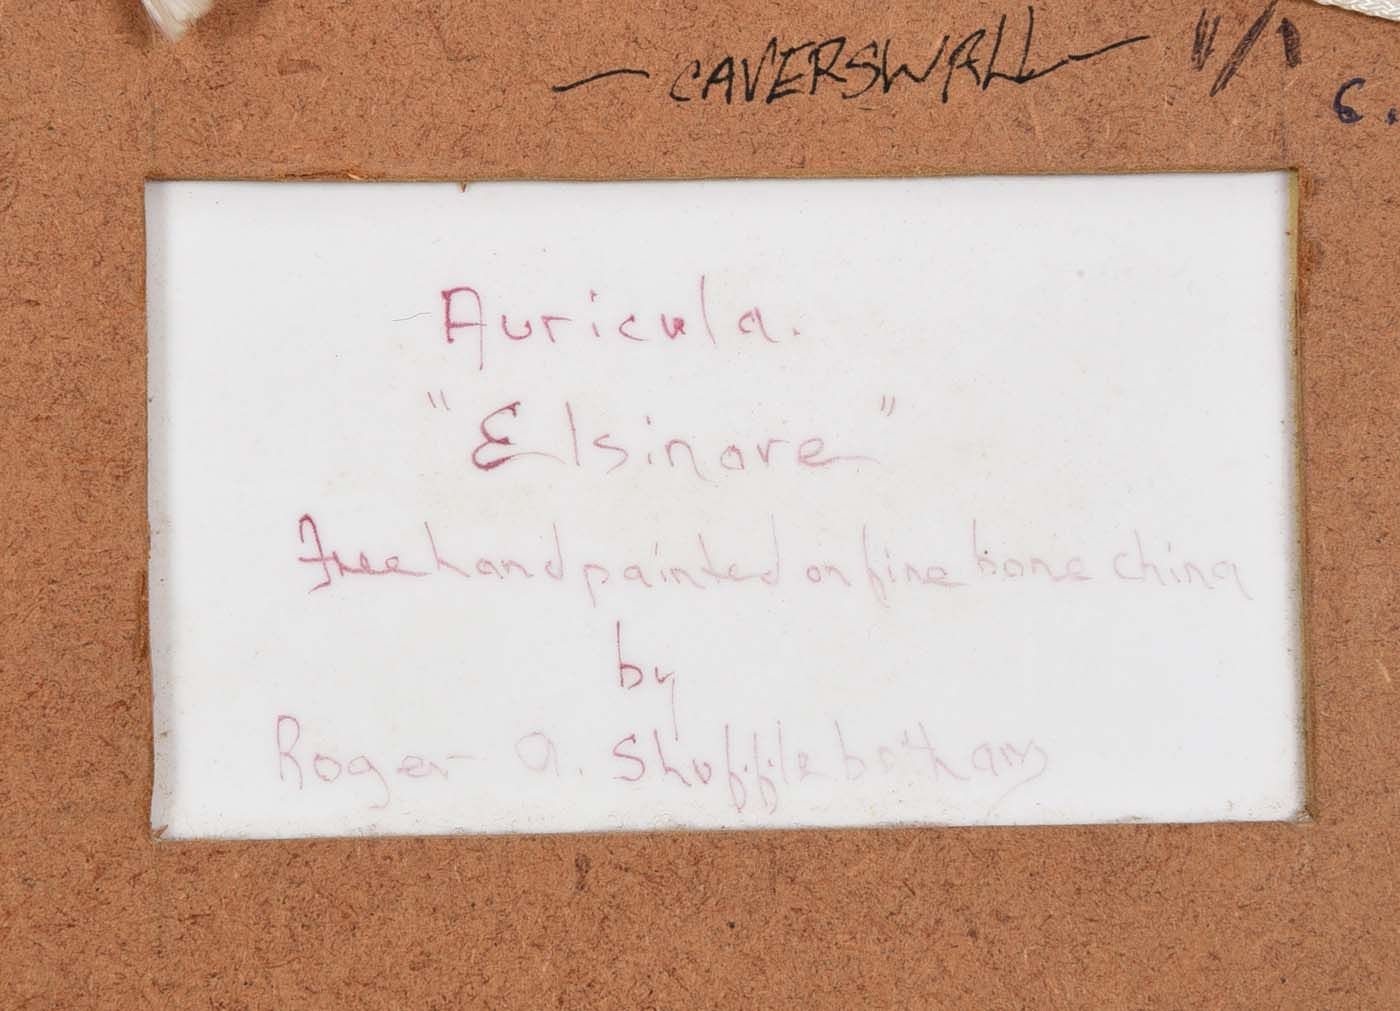 — CAVERSWALL — 11/1
6.
Auricula.
"Elsinore"
Free hand painted on fine bone china
by
Roger A. Shufflebotham